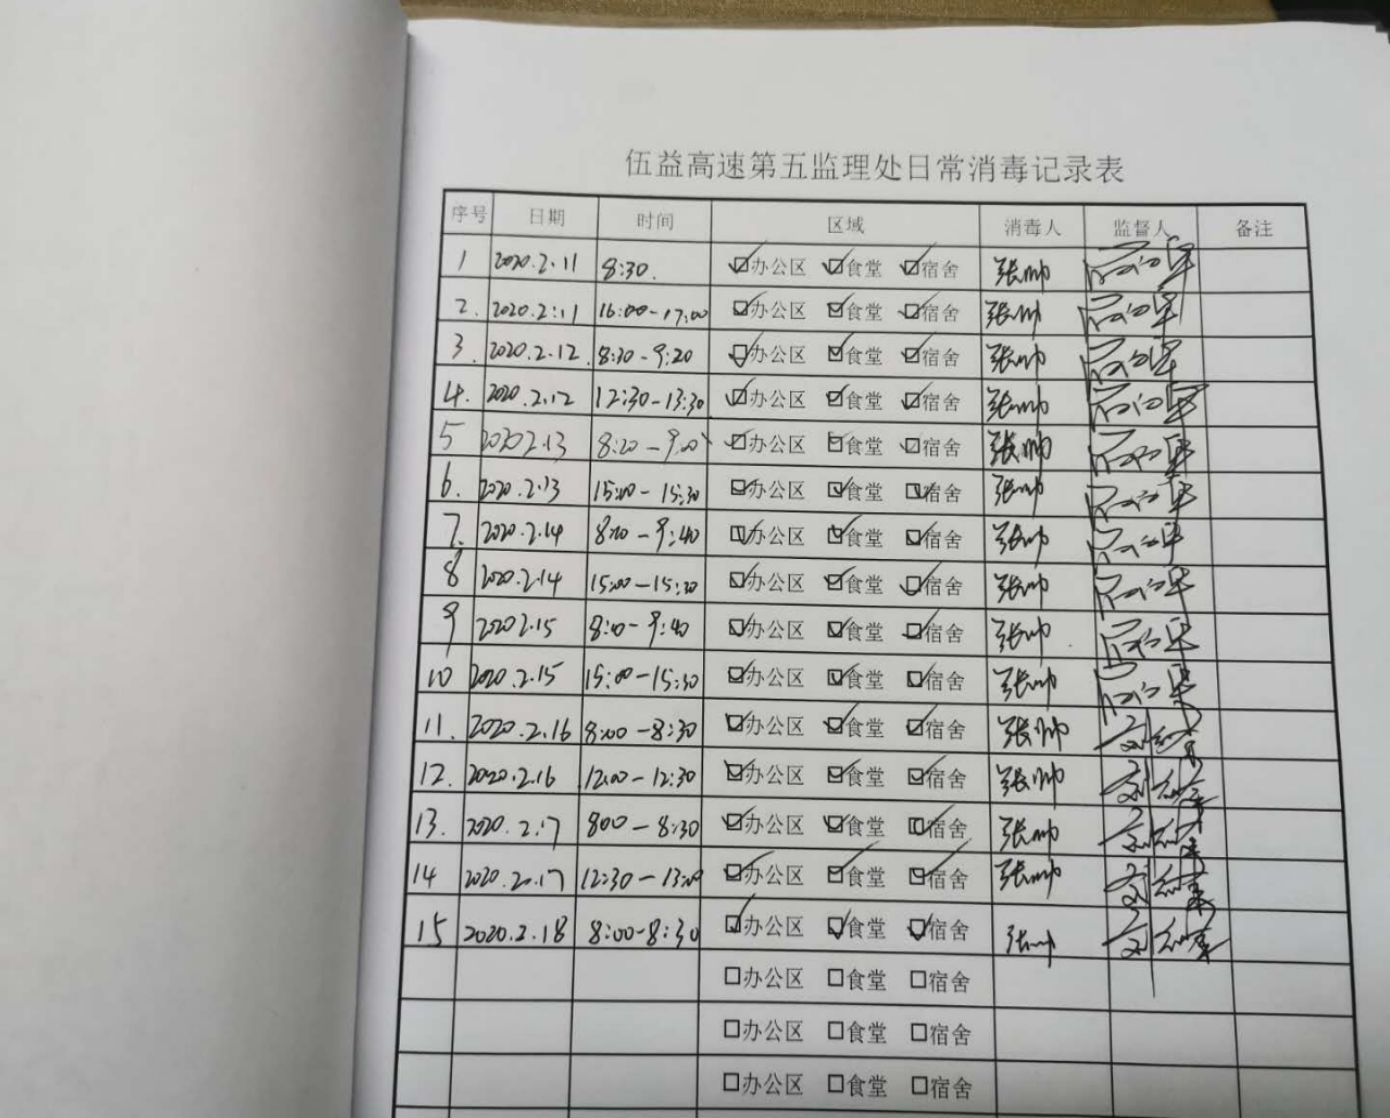 伍益高速第五监理处日常消毒记录表
序号 日期 时间 区域 消毒人 监督人 备注
1 2020.2.11 8:30. ☑办公区 ☑食堂 ☑宿舍 张帅
2. 2020.2.11 16:00-17:00 ☑办公区 ☑食堂 ☑宿舍 张帅
3. 2020.2.12. 8:30-9:20 ☑办公区 ☑食堂 ☑宿舍 张帅
4. 2020.2.12 12:30-13:30 ☑办公区 ☑食堂 ☑宿舍 张帅
5 2020 2.13 8:20-9:00 ☑办公区 ☑食堂 ☑宿舍 张帅
6. 2020.2.13 15:00-15:30 ☑办公区 ☑食堂 ☑宿舍 张帅
7. 2020.2.14 ☑办公区 ☑食堂 ☑宿舍 张帅
8 2020.2.14 15:00-15:30 ☑办公区 ☑食堂 ☑宿舍 张帅
9 2020 2.15 ☑办公区 ☑食堂 ☑宿舍 张帅
10 2020.2.15 15:00-15:30 ☑办公区 ☑食堂 ☑宿舍 张帅
11. 2020.2.16 8:00-8:30 ☑办公区 ☑食堂 ☑宿舍 张帅
12. 2020.2.16 12:00-12:30 ☑办公区 ☑食堂 ☑宿舍 张帅
13. 2020.2.17 800-8:30 ☑办公区 ☑食堂 ☑宿舍 张帅
14 2020.2.17 12:30-13:00 ☑办公区 ☑食堂 ☑宿舍 张帅
15 2020.2.18 8:00-8:30 ☑办公区 ☑食堂 ☑宿舍 张帅
□办公区 □食堂 □宿舍
□办公区 □食堂 □宿舍
□办公区 □食堂 □宿舍